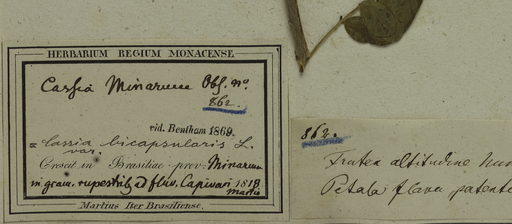 HERBARIUM REGIUM MONACENSE
Cassia Minarum Obs. no.
862.
vid. Bentham 1869.
= Cassia bicapsularis L.
var.
Crescit in Brasiliae prov. Minarum
in gram. rupestrib. ad fluv. Capivari 1818
Martio
Martius Iter Brasiliense.
862.
Frutex altitudine
Petala flava patentia